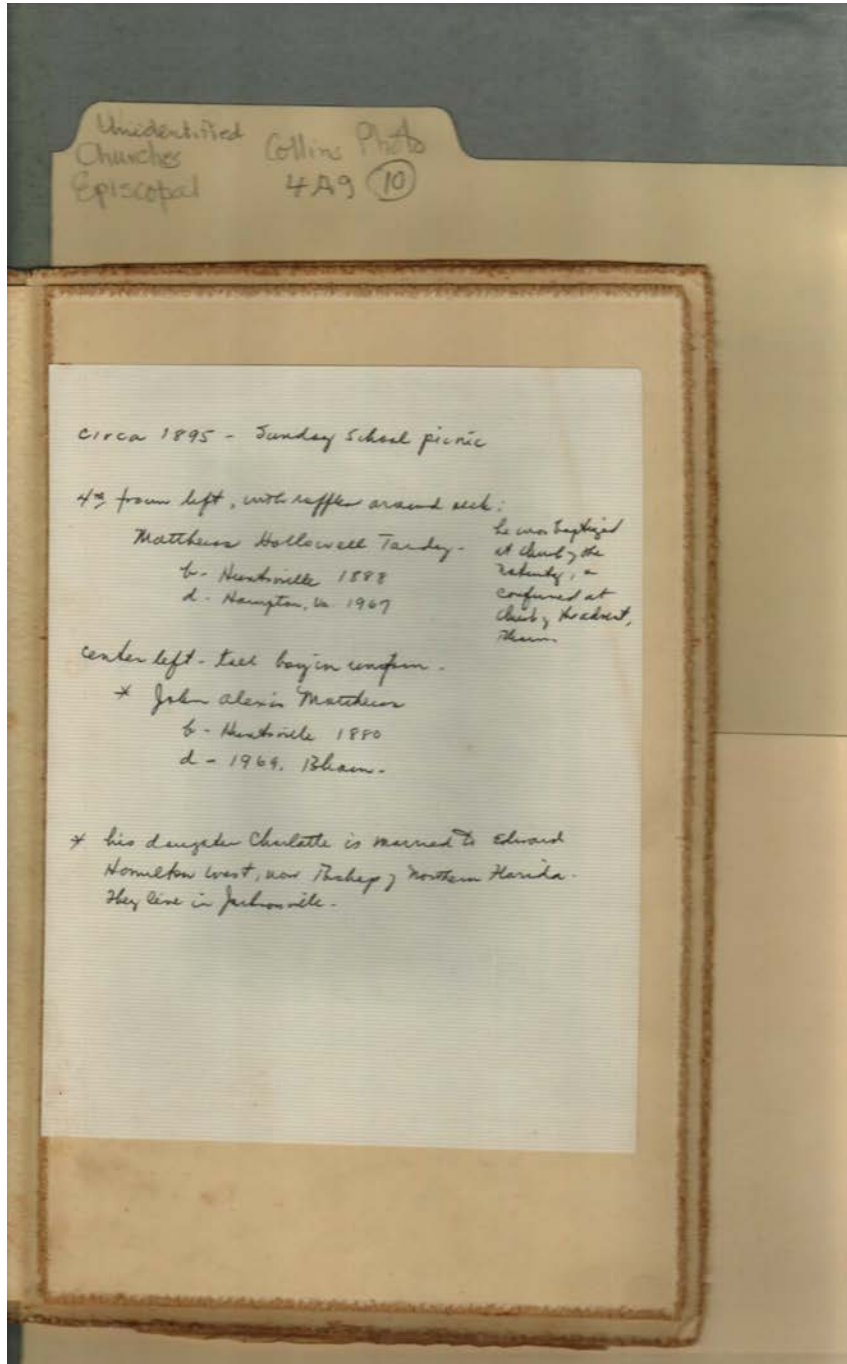 Unidentified
Churches
Episcopal
Collins Photo
4A9 10
circa 1895 - Sunday School picnic
4th from left, with ruffles around neck:
Matthews Hollowell Tardy -
b - Huntsville 1888
d - Hampton, Va. 1967
he was baptized
at Church of the
Nativity,
confirmed at
Church of the Advent,
Bham
center left - tall boy in uniform -
* John Alexis Matthews
b - Huntsville 1880
d - 1969. Bham -
* his daughter Charlotte is married to Edward
Hamilton West, now Bishop of Northern Florida -
They live in Jacksonville -